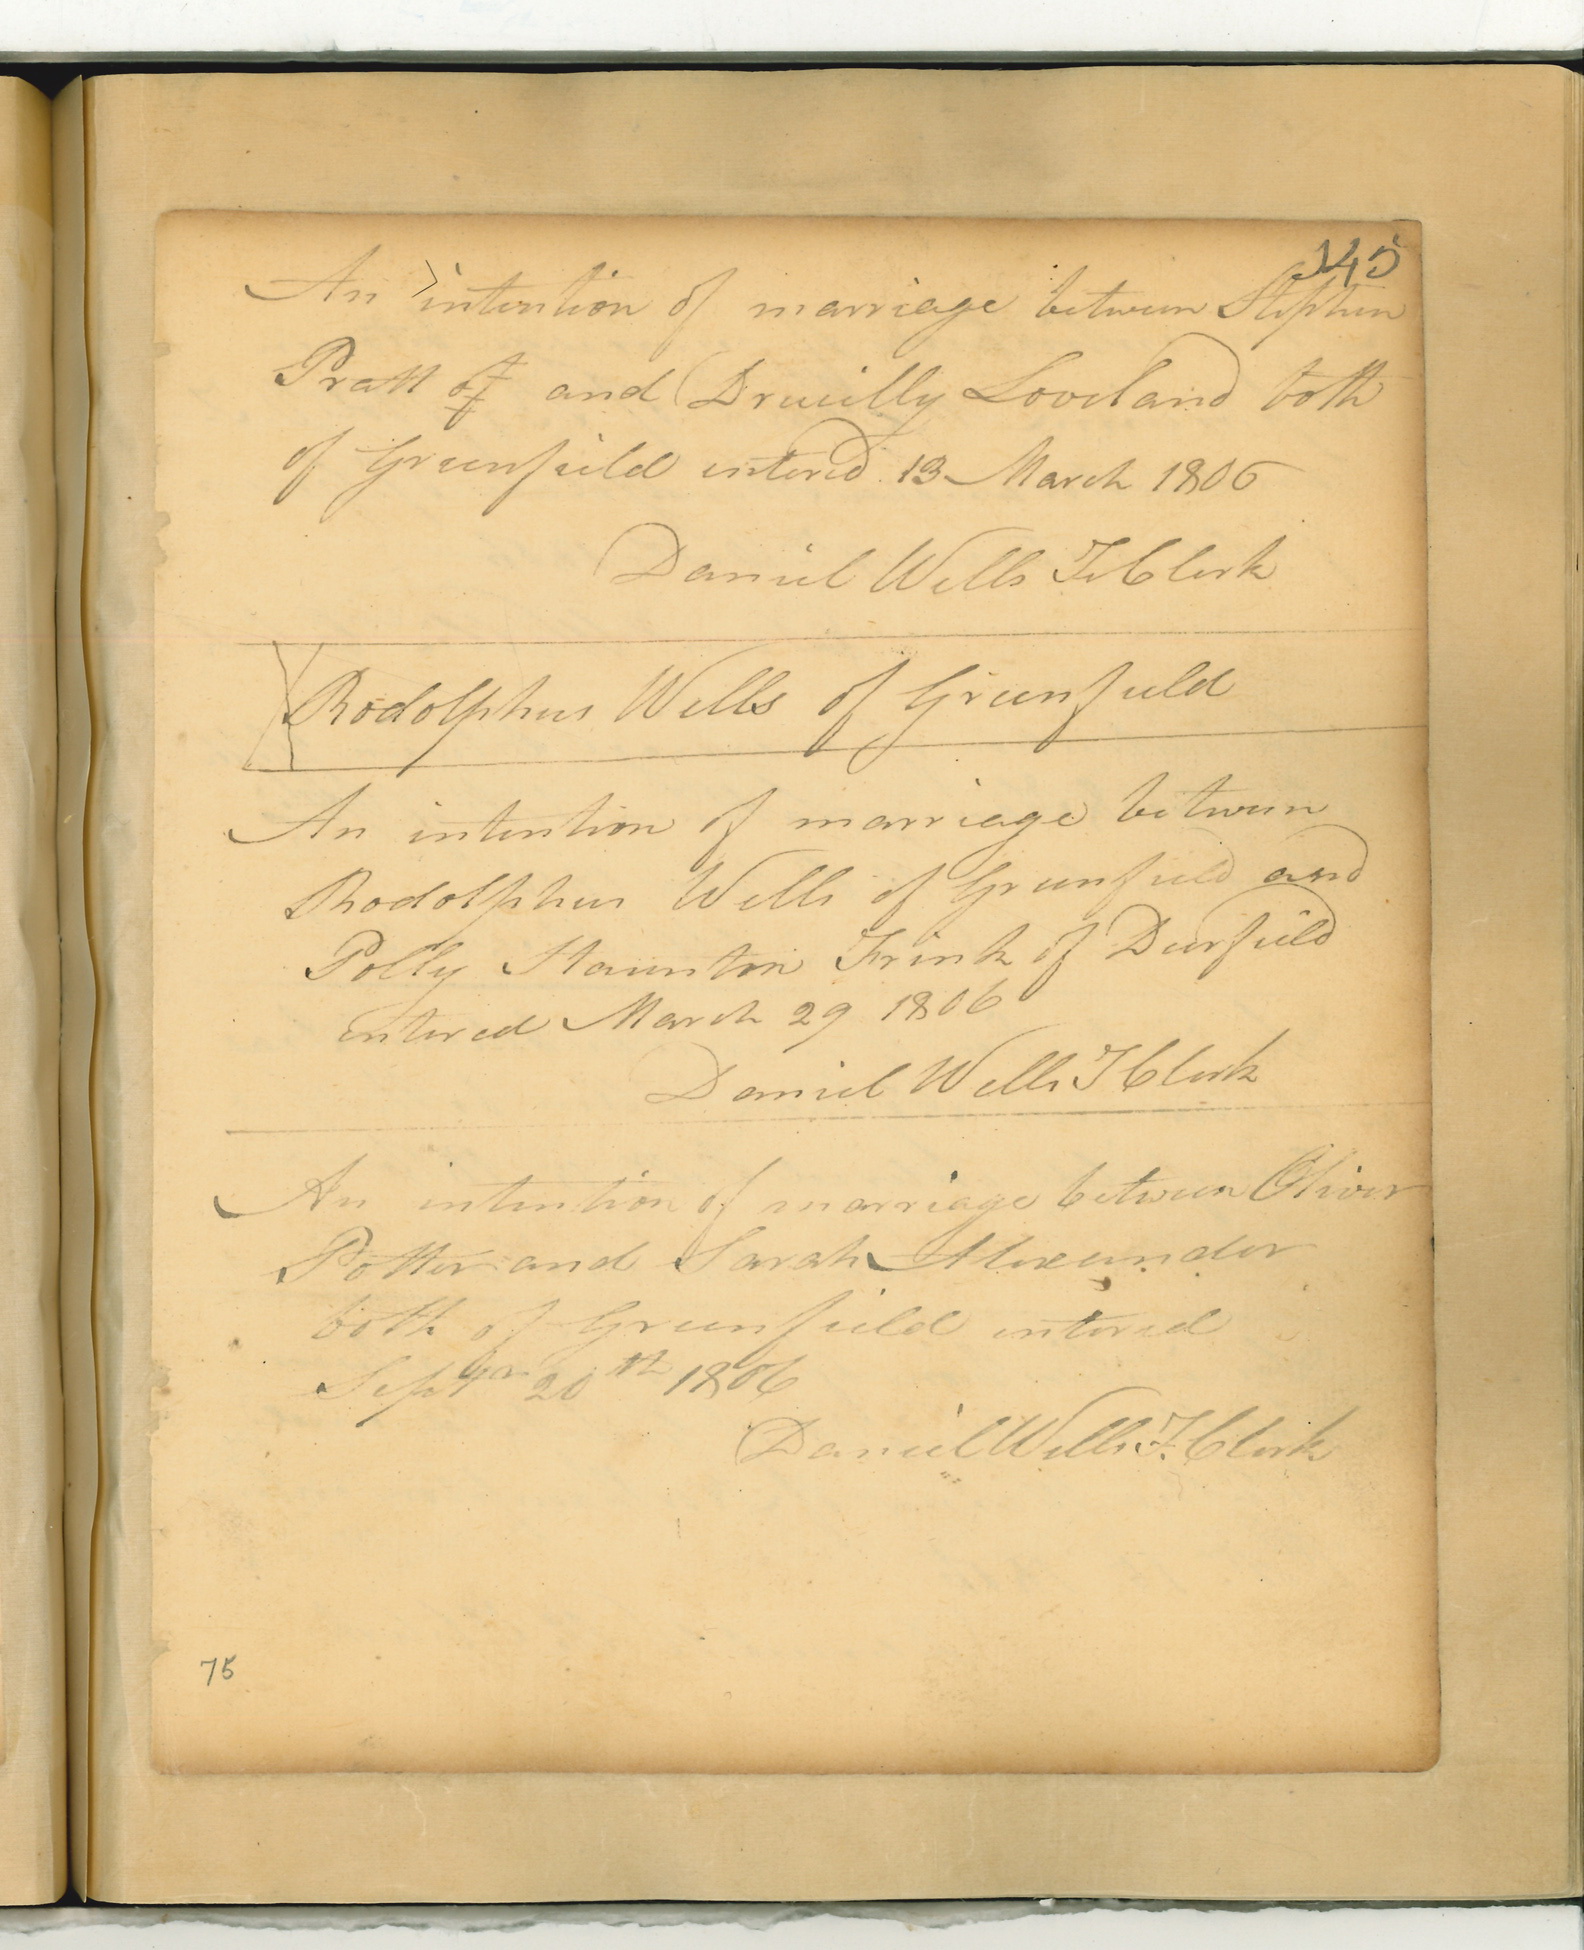 145
An intention of marriage between Stephen
Pratt of and Drucilly Loveland both
of Greenfield entered 13 March 1806
Daniel Wells T Clerk
Rodolphus Wells of Greenfield
An intention of marriage between
Rodolphus Wells of Greenfield and
Polly Staunton Frink of Deerfield
entered March 29 1806
Daniel Wells T Clerk
An intention of marriage between Oliver
Potter and Sarah Alexander
both of Greenfield entered
20th 1806
Daniel Wells T. Clerk
75